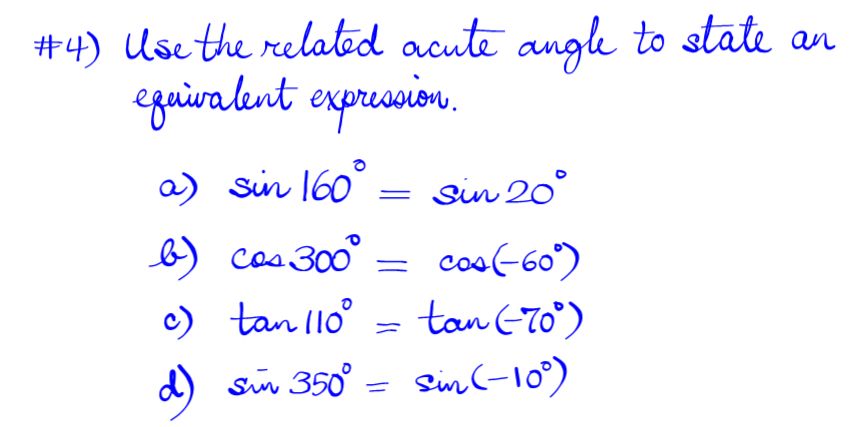 #4) Use the related acute angle to state an
equivalent expression.
a) sin 160° = sin 20°
b) cos 300° = cos(-60°)
c) tan 110° = tan(-70°)
d) sin 350° = sin(-10°)